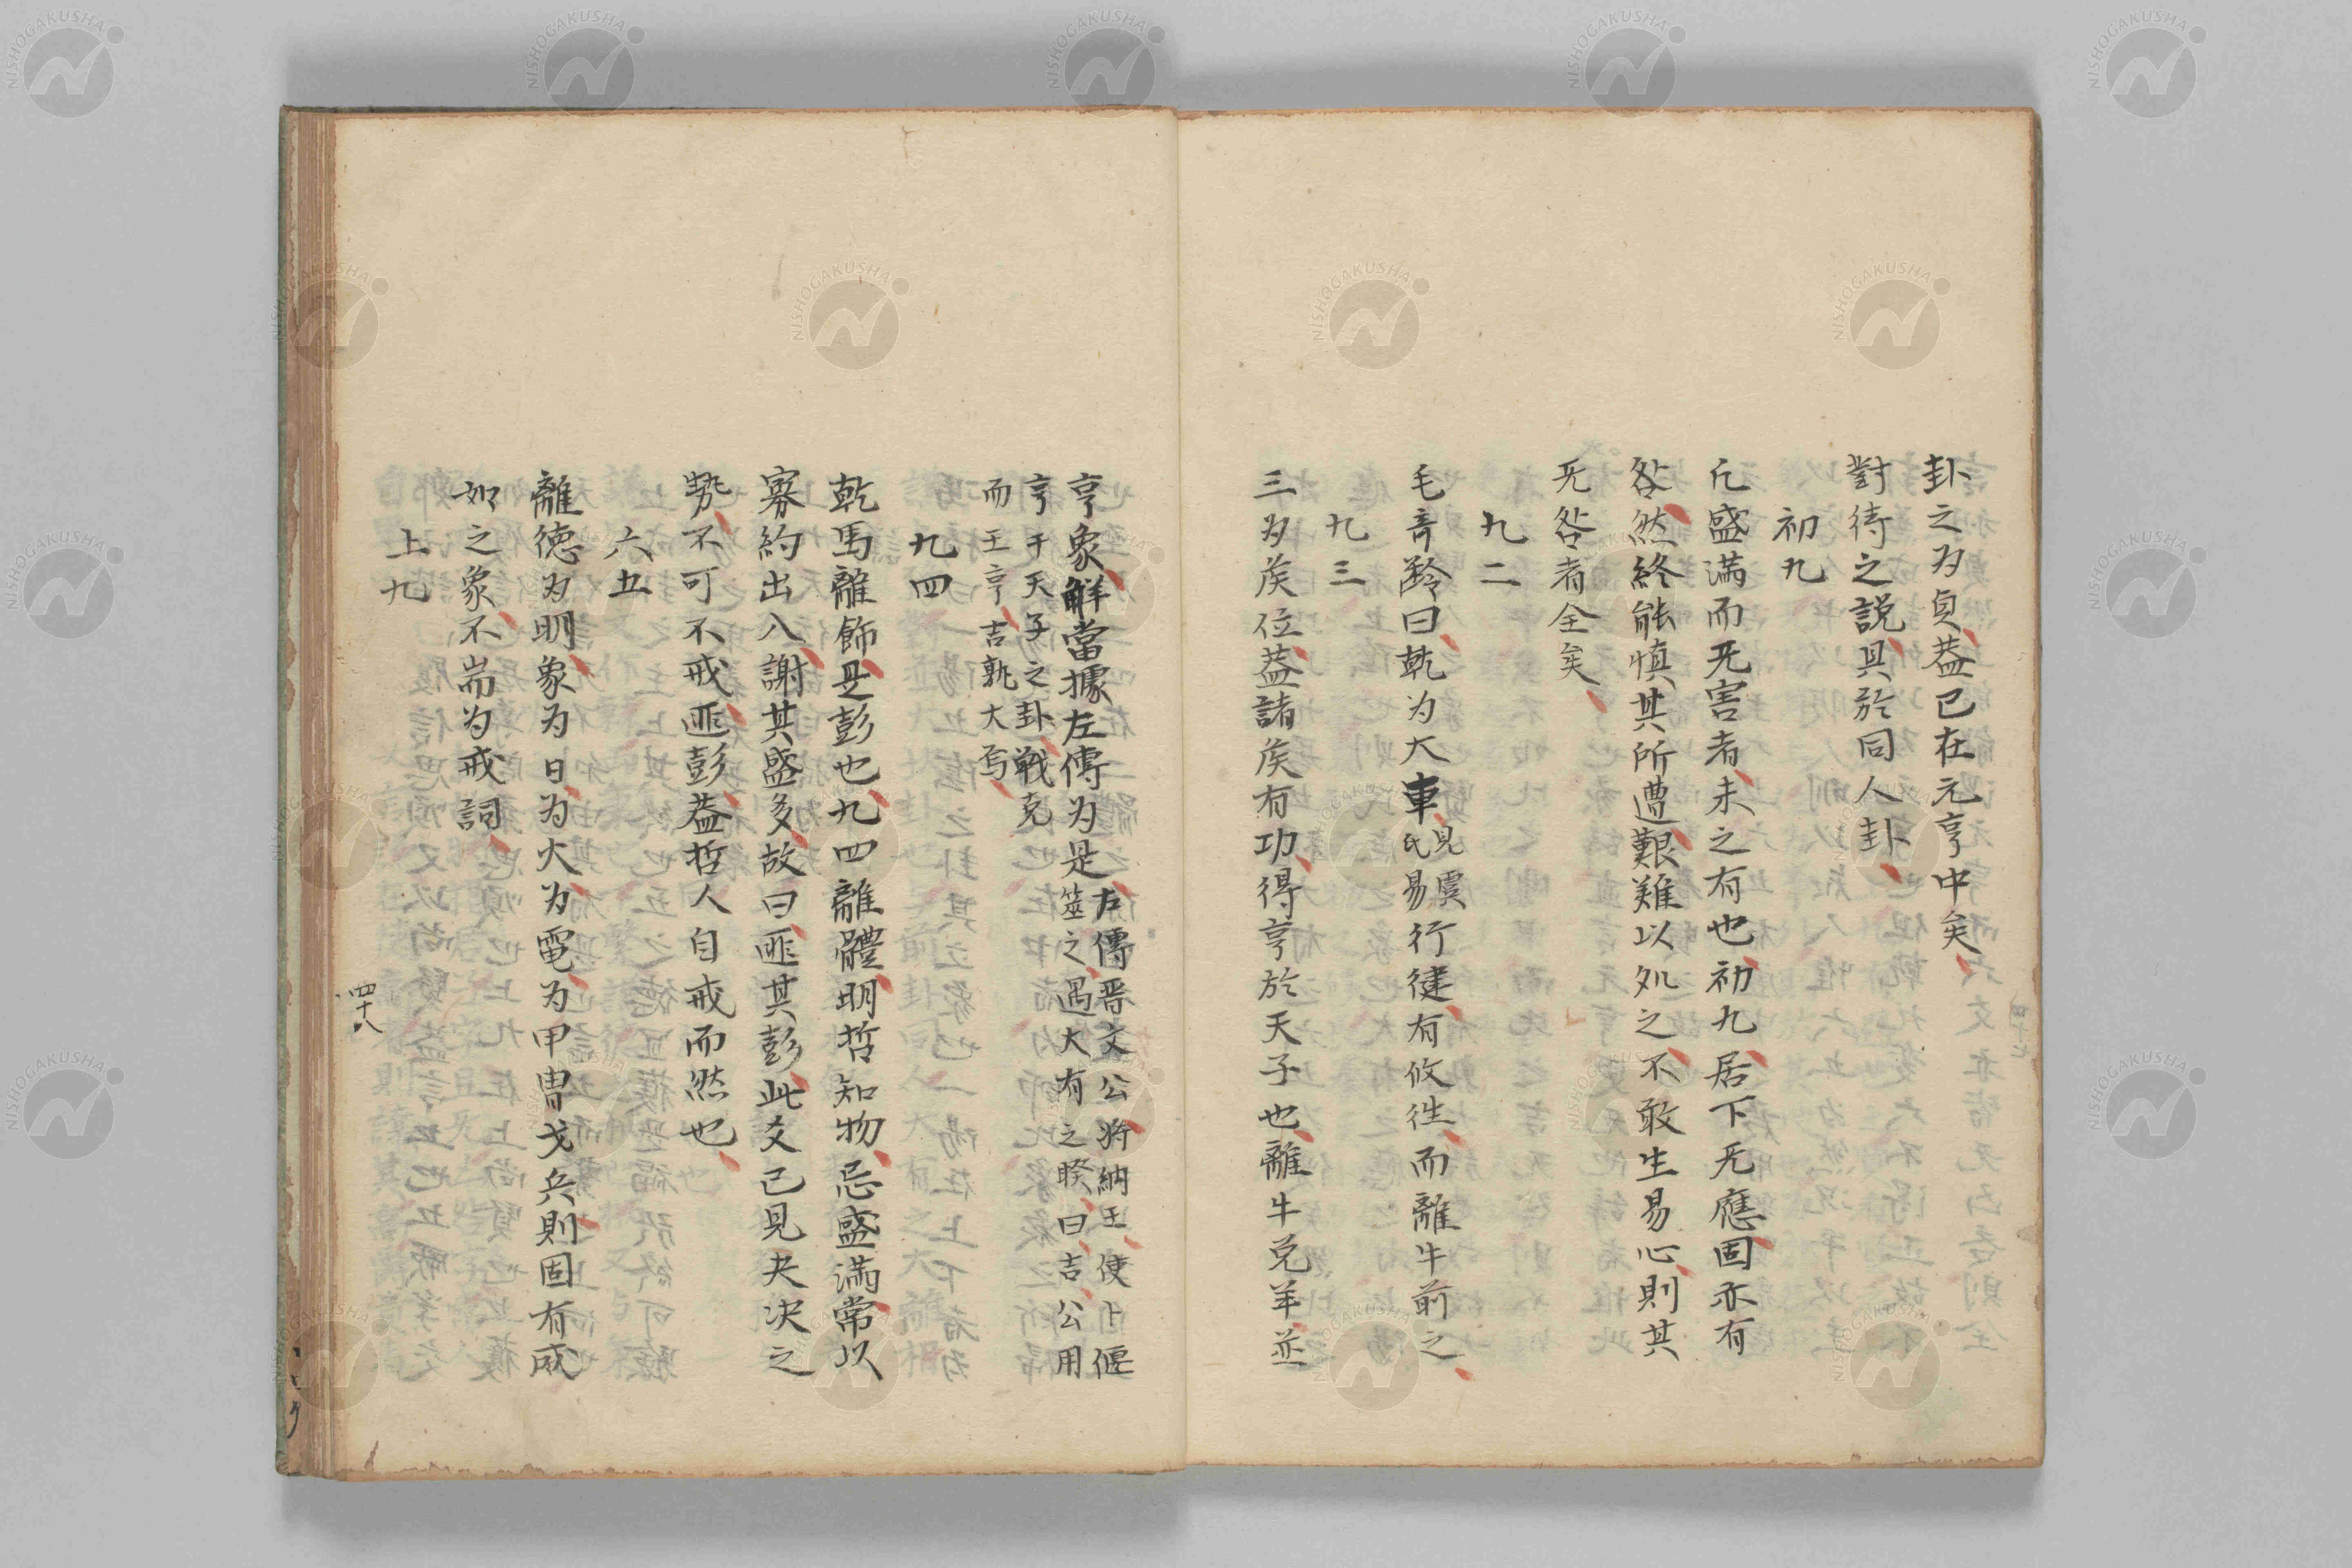 卦之为貞蓋已在元亨中矣
對待之説具於同人卦
初九
凢盛满而无害者未之有也初九居下无應固亦有
咎然終能慎其所遭艱難以処之不敢生易心則其
无咎者全矣
九二
毛竒齡曰乾为大車見虞氏易行健有攸徃而離牛前之
九三
三为矦位葢諸矦有功得亨於天子也離牛兑羊並
亨象觧當據左傳为是左傳晋文公将納王使卜偃
筮之遇大有之睽曰吉公用
亨于天子之卦戦克
而王亨吉孰大焉
九四
乾馬離飾是彭也九四離體明哲知物忌盛満常以
寡約出入謝其盛多故曰匪其彭此爻已見夬决之
㔟不可不戒匪彭葢哲人自戒而然也
六五
離徳为明象为日为火为電为甲冑戈兵則固有威
如之象不耑为戒詞
上九
四十八
NISHOGAKUSHA